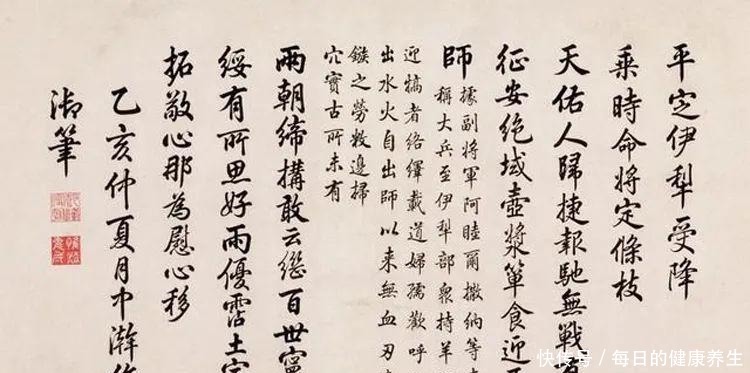 平定伊犁受降
乘時命將定條枝
天佑人歸捷報馳無戰
征安絶域壺漿箪食迎
師
據副將軍阿睦爾撒納等
稱大兵至伊犁部衆持羊
迎犒者絡繹載道婦孺歡呼
出水火自出師以来無血刃
鏃之勞敉邊掃
穴實古所未有
兩朝締構敢云繼百世寧
綏有所思好雨優霑土宇
拓敬心那為慰心移
乙亥仲夏月中澣
御筆
快传号 / 每日的健康养生